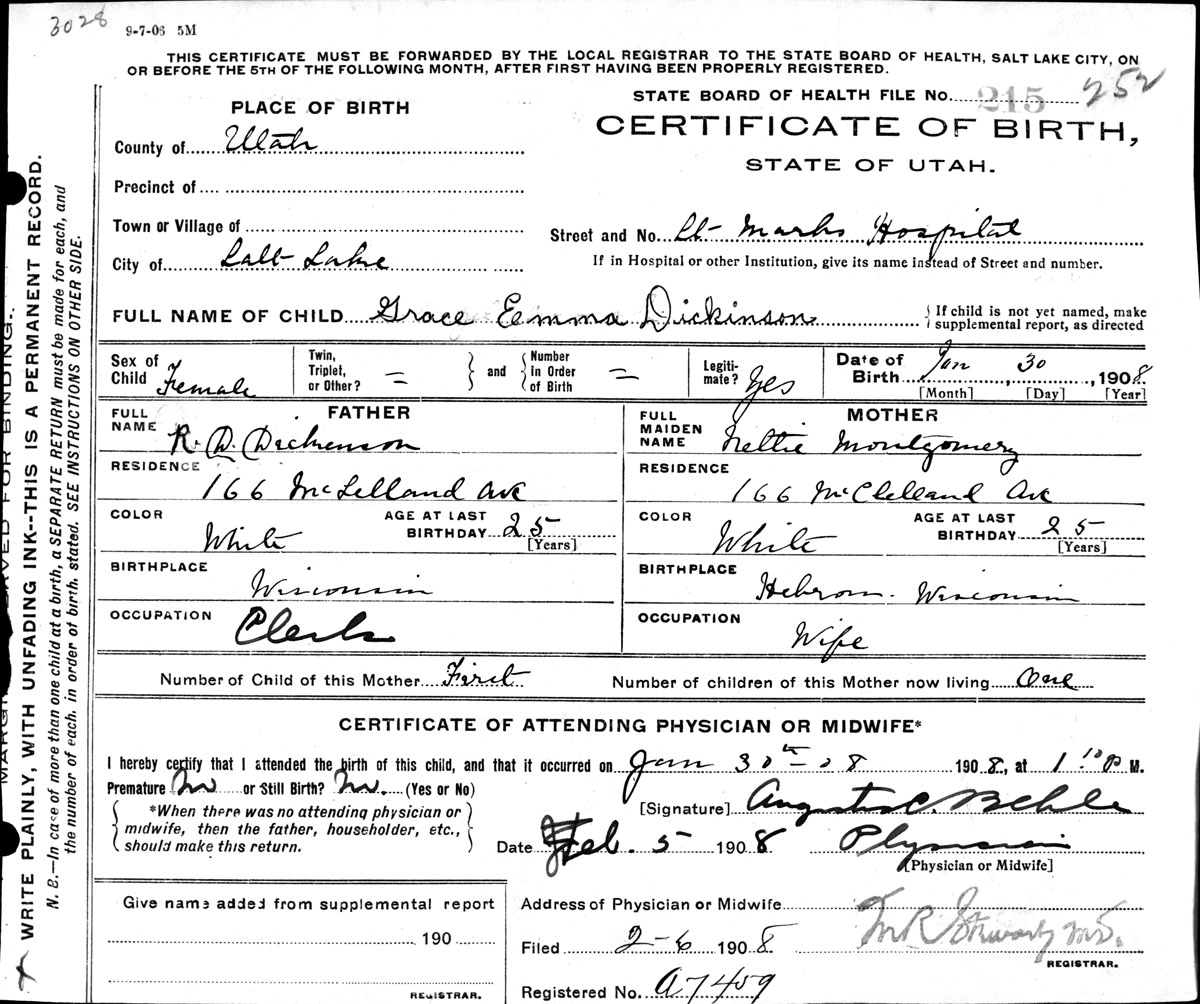 3028
9-7-06 5M
THIS CERTIFICATE MUST BE FORWARDED BY THE LOCAL REGISTRAR TO THE STATE BOARD OF HEALTH, SALT LAKE CITY, ON
OR BEFORE THE 5TH OF THE FOLLOWING MONTH, AFTER FIRST HAVING BEEN PROPERLY REGISTERED.
STATE BOARD OF HEALTH FILE No. 215 252
PLACE OF BIRTH
CERTIFICATE OF BIRTH,
STATE OF UTAH.
County of Utah
Precinct of
Town or Village of
Street and No. St Marks Hospital
City of Salt Lake
If in Hospital or other Institution, give its name instead of Street and number.
FULL NAME OF CHILD Grace Emma Dickinson
{If child is not yet named, make
supplemental report, as directed
Sex of Child Female
Twin, Triplet, or Other? =
and
Number In Order of Birth =
Legiti-mate? Yes
Date of Birth Jan 30, 1908
[Month] [Day] [Year]
FATHER
FULL NAME R. D. Dickenson
RESIDENCE
166 McLelland Ave
COLOR White
AGE AT LAST BIRTHDAY 25
[Years]
BIRTHPLACE
Wisconsin
OCCUPATION
Clerk
MOTHER
FULL MAIDEN NAME Nettie Montgomery
RESIDENCE
166 McClelland Ave
COLOR White
AGE AT LAST BIRTHDAY 25
[Years]
BIRTHPLACE
Hebron. Wisconsin
OCCUPATION
Wife
Number of Child of this Mother First
Number of children of this Mother now living one
CERTIFICATE OF ATTENDING PHYSICIAN OR MIDWIFE*
I hereby certify that I attended the birth of this child, and that it occurred on Jan 30th-08 1908, at 1 10 P M.
Premature No or Still Birth? No. (Yes or No)
*When there was no attending physician or
midwife, then the father, householder, etc.,
should make this return.
[Signature] Augustus C. Behle
Date Feb. 5 1908 Physician
[Physician or Midwife]
Give name added from supplemental report
190
REGISTRAR.
Address of Physician or Midwife
Filed 2-6 1908
M R Stewart MD.
REGISTRAR.
Registered No. A7409
WRITE PLAINLY, WITH UNFADING INK--THIS IS A PERMANENT RECORD.
N. B.—In case of more than one child at a birth, a SEPARATE RETURN must be made for each, and
the number of each, in order of birth, stated. SEE INSTRUCTIONS ON OTHER SIDE.
FOR BINDING.